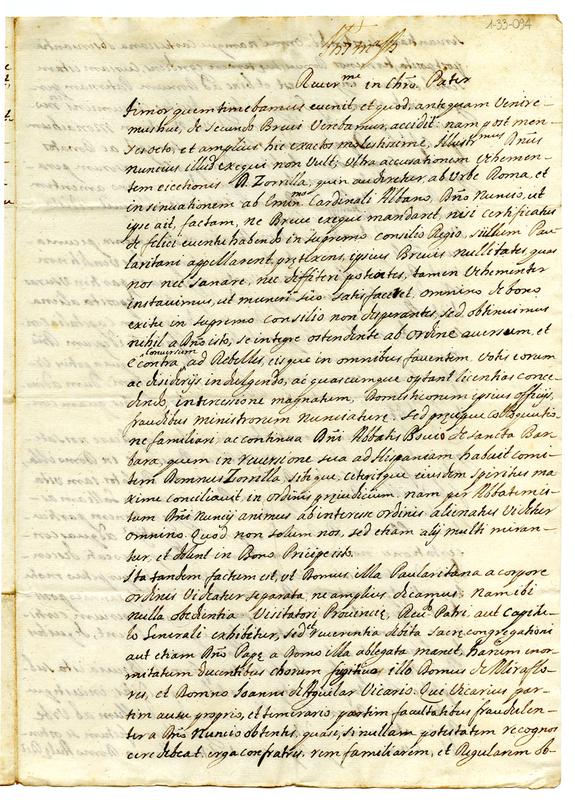 1-33-094
Reuer.me in Chr̃o Pater
timor quem timebamus euenit, et quod, antequam Venire-
mus huc, de secundo Breui Verebamur, accidit: nam post men-
ses octo, et amplius hic exactos molestissime, Illustr.mus Dñus
nuncius illud exequi non Vult; Vltra accusationem Vehemen-
tem D. Zorrilla, quin audiretur, ab Vrbe Roma, et
insinuationem ab Emin.mo Cardinali Albano, Dño Nuncio, ut
ipse ait, factam, ne Breue exequi mandaret, nisi certificatus
de felici euentu habendo in supremo consilio Regio, si illum Pau-
laritani appellarent, prętexens, ipsius Breuis nullitates, quas
nos nec sanare, nec diffiteri potuimus, tamen Vehementer
institimus, ut muneri suo satisfaceret, omnino de bono
exitu in supremo Consilio non desperantes, sed obtinuimus
nihil a Dño isto, se integre ostendente ab ordine auersum, et
e contra conuersum ad Rebelles, eisque in omnibus fauentem, Votis eorum
ac desiderijs indulgendo, ac quascumque optant licentias conce-
dendo, intercessione magnatum, Domesticorum ipsius officijs,
fraudibus ministrorum Nunciaturę, sed pręcipue colloquutio-
ne familiari, ac continua Dñi Abbatis de sancta Bar-
bara, quem in reuersione sua ad Hispaniam habuit comi-
tem Domnus Zorrilla, sibique, ceterisque eiusdem spiritus ma-
xime conciliauit, in ordinis pręiudicium, nam per Abbatem is-
tum Dñi Nuncij animus ab interesse ordinis alienatus Videtur
omnino. Quod non solum nos, sed etiam alij multi miran-
tur, et dolent in Dono Principe isto.
Ita tandem factum est, ut Domus illa Paularitana a corpore
ordinis Videatur separata, ne amplius dicamus, nam ibi
nulla obedientia Visitatori Prouincię, Reu.o Patri, aut Capitu-
lo Generali exhibetur, sed et reuerentia debita sacrę congregationi
aut etiam Dño Papę a Domo illa ablegata manet, harum enor-
mitatum ducentibus chorum fugitiuo illo Domus de Miraflo-
res, et Domno Joanni de Aguilar Vicario. Qui Vicarius par-
tim ausu proprio, et temerario, partim facultatibus fraudulen-
ter a Dño Nuncio obtentis, quasi, si nullam potestatem recognos-
cere debeat, erga confratres, rem familiarem, et Regularem ob-